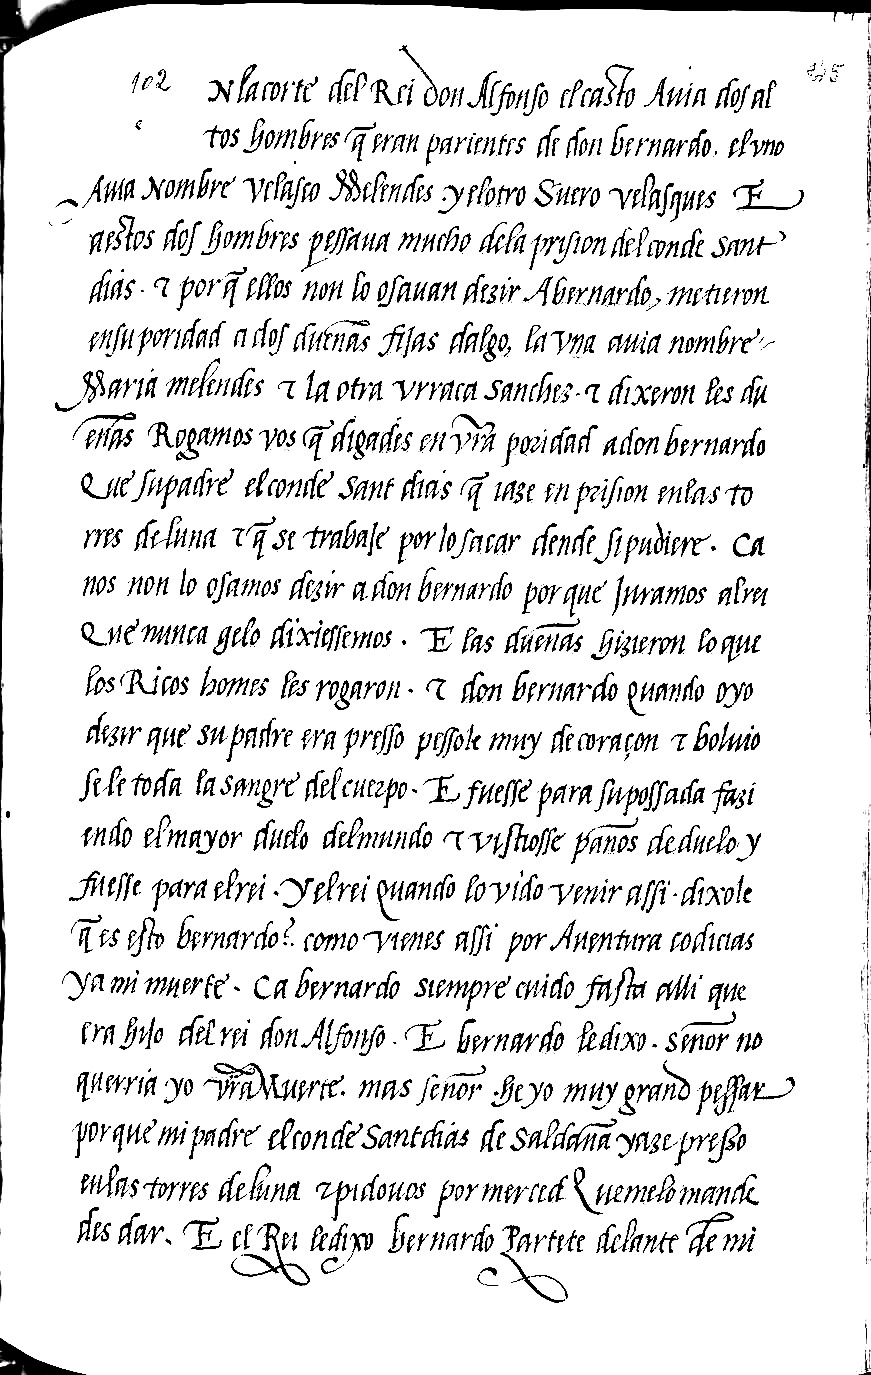 102
N la corte del Rei don Alfonso el casto Auia dos al
tos hombres q̃ eran parientes de don bernardo. el vno
Auia Nombre Velasco Melendes . y el otro Suero velasques E
aestos dos hombres pessaua mucho dela prision del conde Sant
dias . τ por q̃ ellos non lo osauan dezir Abernardo, metieron
ensu poridad a dos dueñas fijas dalgo, la vna auia nombre
Maria melendes τ la otra vrraca Sanchez . τ dixeron les du
eñas Rogamos vos q̃ digades en vr̃a poridad a don bernardo
Que su padre el conde Sant dias q̃ iaze en prision en las to
rres de luna τ q̃ se trabaje por lo sacar dende si pudiere . Ca
nos non lo osamos dezir a don bernardo porque Juramos al rei
Que nunca gelo dixiessemos . E las dueñas hizieron lo que
los Ricos homes les rogaron . τ don bernardo quando oyo
dezir que su padre era presso pessole muy de coraçon τ boluio
se le toda la sangre del cuerpo . E fuesse para su possada fazi
endo el mayor duelo del mundo τ vistiosse paños de duelo y
fuesse para el rei . Y el rei quando lo vido venir assi . dixole
q̃ es esto bernardo? . como vienes assi por Auentura codicias
ya mi muerte . Ca bernardo siempre cuido fasta alli que
era hijo del rei don Alfonso . E bernardo le dixo . señor no
querria yo vr̃a Muerte . mas señor he yo muy grand pessar
porque mi padre el conde Sant dias de Saldaña yaze presso
en las torres de luna τ pidouos por merced Quemelo mande
des dar . E el Rei le dixo bernardo Partete delante de mi